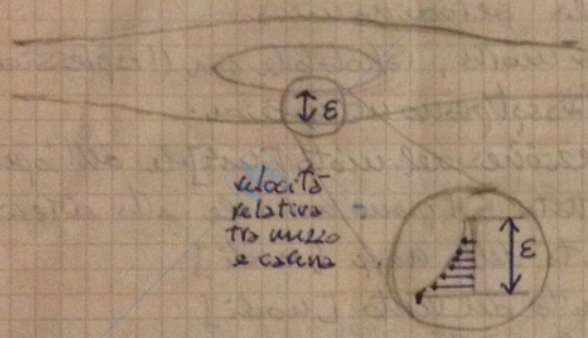 ε
velocità
relativa
tra mezzo
e carena
ε